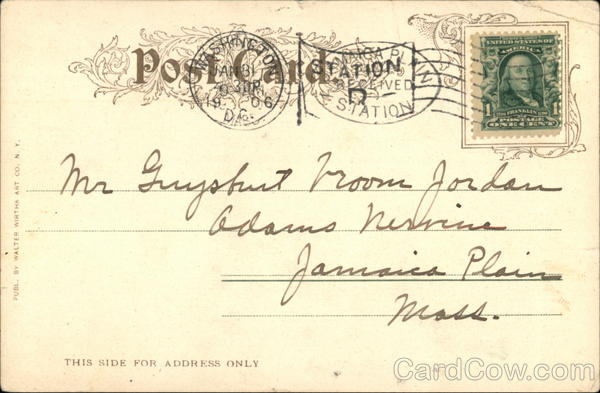 Post Card
WASHINGTON
JAN 31
9 30 P
1906
D.C.
STATION
D
JAMAICA PLAIN
RECEIVED
STATION
UNITED STATES OF AMERICA
FRANKLIN
1 POSTAGE 1
ONE CENT
Mr Guysbert Vroom Jordan
Adams Nervine
Jamaica Plain
Mass.
PUBL. BY WALTER WIRTHS ART CO. N. Y.
THIS SIDE FOR ADDRESS ONLY
CardCow.com